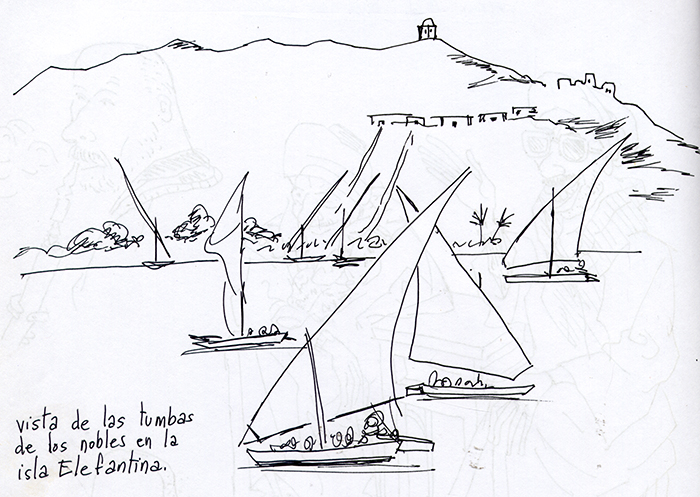 vista de las tumbas
de los nobles en la
isla Elefantina.